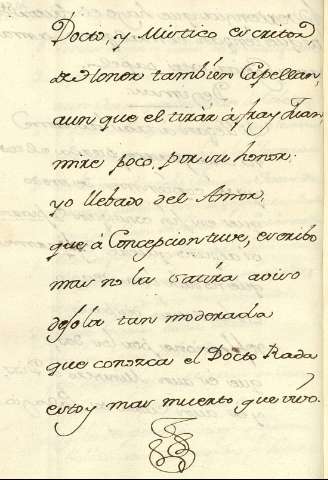 Docto, y Mistico escritor
de Honor tambien Capellan,
aun que el tirár á fray Juan
mire poco, por su honor.
yo llebado del Amor,
que á Concepcion tuve, escribo
mas no la satira avivo
dejola tan moderada
que conozca el Docto Rada
estoy mas muerto que vivo.